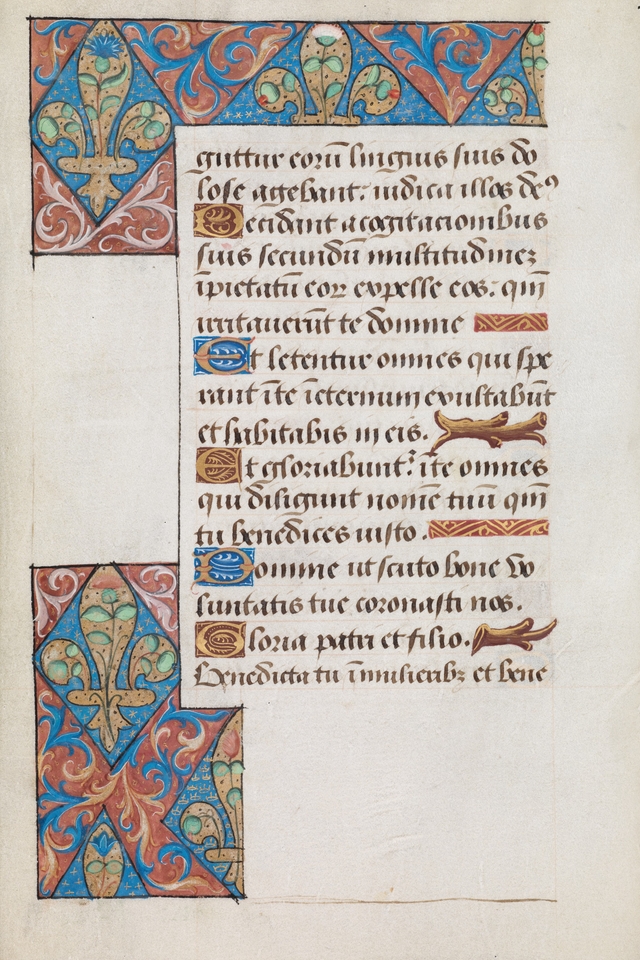 guttur eorū linguis suis do
lose agebant: iudica illos de⁹
Decidant acogitacionibus
suis secundū multitudinez
īpietatū eoꝝ expelle eos: qm̄
irritauerūt te domine
Et letentur omnes qui spe
rant īte īeternum exultabūt
et habitabis in eis.
Et gloriabunt᷑ īte omnes
qui diligunt nomē tuū qm̄
tu benedices iusto.
Domine ut scuto bone vo
luntatis tue coronasti nos.
Gloria patri et filio.
Benedicta tu ī mulieribꝫ et bene